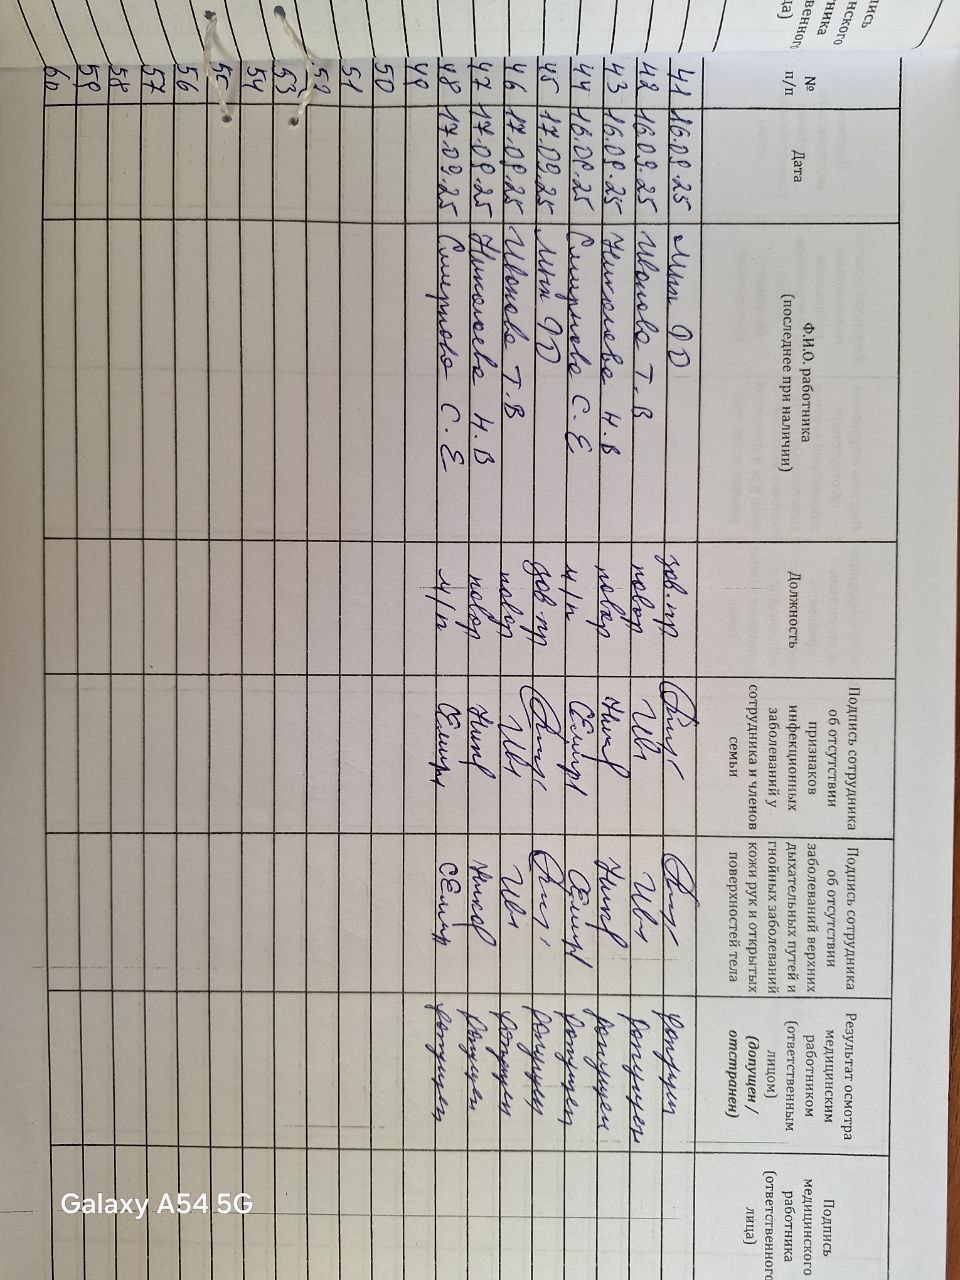 № п/п | Дата | Ф.И.О. работника (последнее при наличии) | Должность | Подпись сотрудника об отсутствии признаков инфекционных заболеваний у сотрудника и членов семьи | Подпись сотрудника об отсутствии заболеваний верхних дыхательных путей и гнойных заболеваний кожи рук и открытых поверхностей тела | Результат осмотра медицинским работником (ответственным лицом) (допущен / отстранен) | Подпись медицинского работника (ответственного лица)
41 16.09.25 зав.пр допущен
42 16.09.25 Иванова Т.В повар Ив допущен
43 16.09.25 Николаева Н.В повар Ник допущен
44 16.09.25 Смирнова С.Е м/п допущен
45 17.09.25 зав.пр допущен
46 17.09.25 Иванова Т.В повар Ив допущен
47 17.09.25 Николаева Н.В повар Ник допущен
48 17.09.25 Смирнова С.Е м/п допущен
49
50
51
52
53
54
55
56
57
58
59
60
Galaxy A54 5G